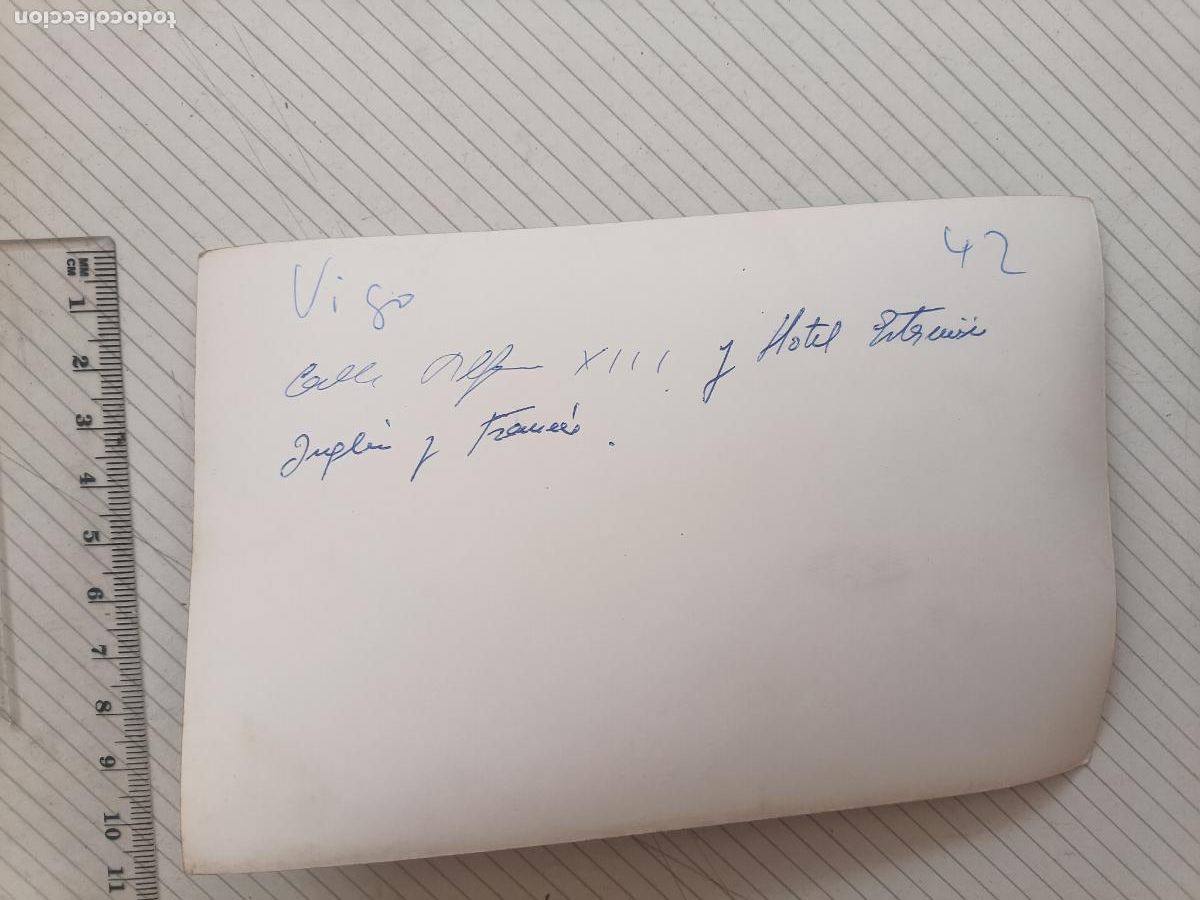 todocoleccion
42
Vigo
Calle Alfonso XIII y Hotel
Inglés y Francés.
MM
CM
1
2
3
4
5
6
7
8
9
10
11